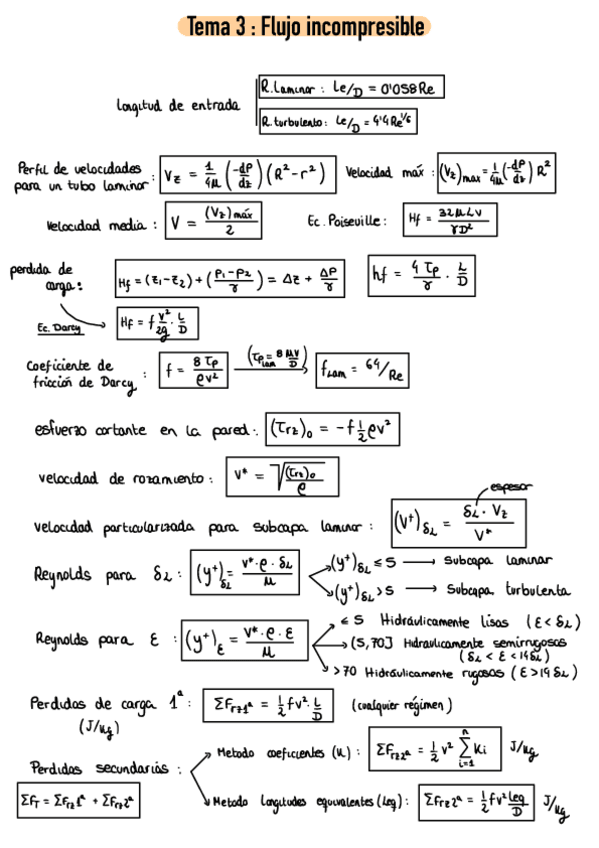 Tema 3 : Flujo incompresible
longitud de entrada
R. Laminar : Le/D = 0'058 Re
R. turbulento : Le/D = 4'4 Re^1/6
Perfil de velocidades para un tubo laminar : Vz = 1/4μ (-dP/dz) (R² - r²)
Velocidad máx : (Vz)max = 1/4μ (-dP/dz) R²
Velocidad media : V = (Vz)máx / 2
Ec. Poiseville : Hf = 32μLV / γD²
perdida de carga : Hf = (z₁-z₂) + (P₁-P₂ / γ) = Δz + ΔP/γ
hf = 4 τp / γ · L/D
Ec. Darcy
Hf = f v²/2g · L/D
Coeficiente de fricción de Darcy : f = 8 τp / ρv²
(τp lam = 8 μV/D)
fLam = 64/Re
esfuerzo cortante en la pared : (τrz)₀ = -f 1/2 ρv²
velocidad de rozamiento : v* = √((τrz)₀ / ρ)
espesor
velocidad particularizada para subcapa laminar : (V⁺)δL = δL · Vz / V*
Reynolds para δL : (y⁺)δL = v*·ρ·δL / μ
(y⁺)δL ≤ 5 → Subcapa laminar
(y⁺)δL > 5 → Subcapa turbulenta
Reynolds para ε : (y⁺)ε = v*·ρ·ε / μ
≤ 5 Hidráulicamente lisas (ε < δL)
(5,70] Hidraulicamente semirrugosas
(δL < ε < 14δL)
> 70 Hidráulicamente rugosas (ε > 14 δL)
Perdidas de carga 1ª : ΣFrz1ª = 1/2 fv² · L/D (cualquier régimen)
(J/kg)
Metodo coeficientes (K) : ΣFrz2ª = 1/2 v² Σ(i=1, n) Ki J/kg
Perdidas secundarias :
ΣFT = ΣFrz1ª + ΣFrz2ª
Metodo longitudes equivalentes (Leq) : ΣFrz2ª = 1/2 fv² Leq/D J/kg